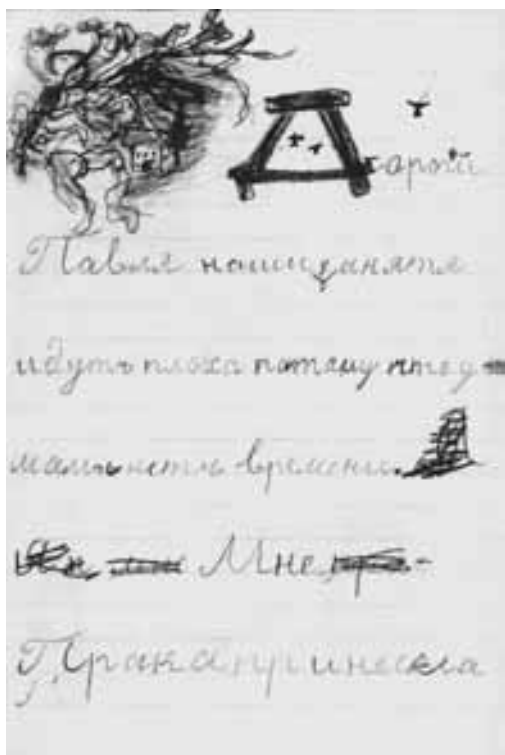 Дарогй
Павля наши занятя
идутъ плоха патаму что у
мамы нетъ времени.
Мне
принесла